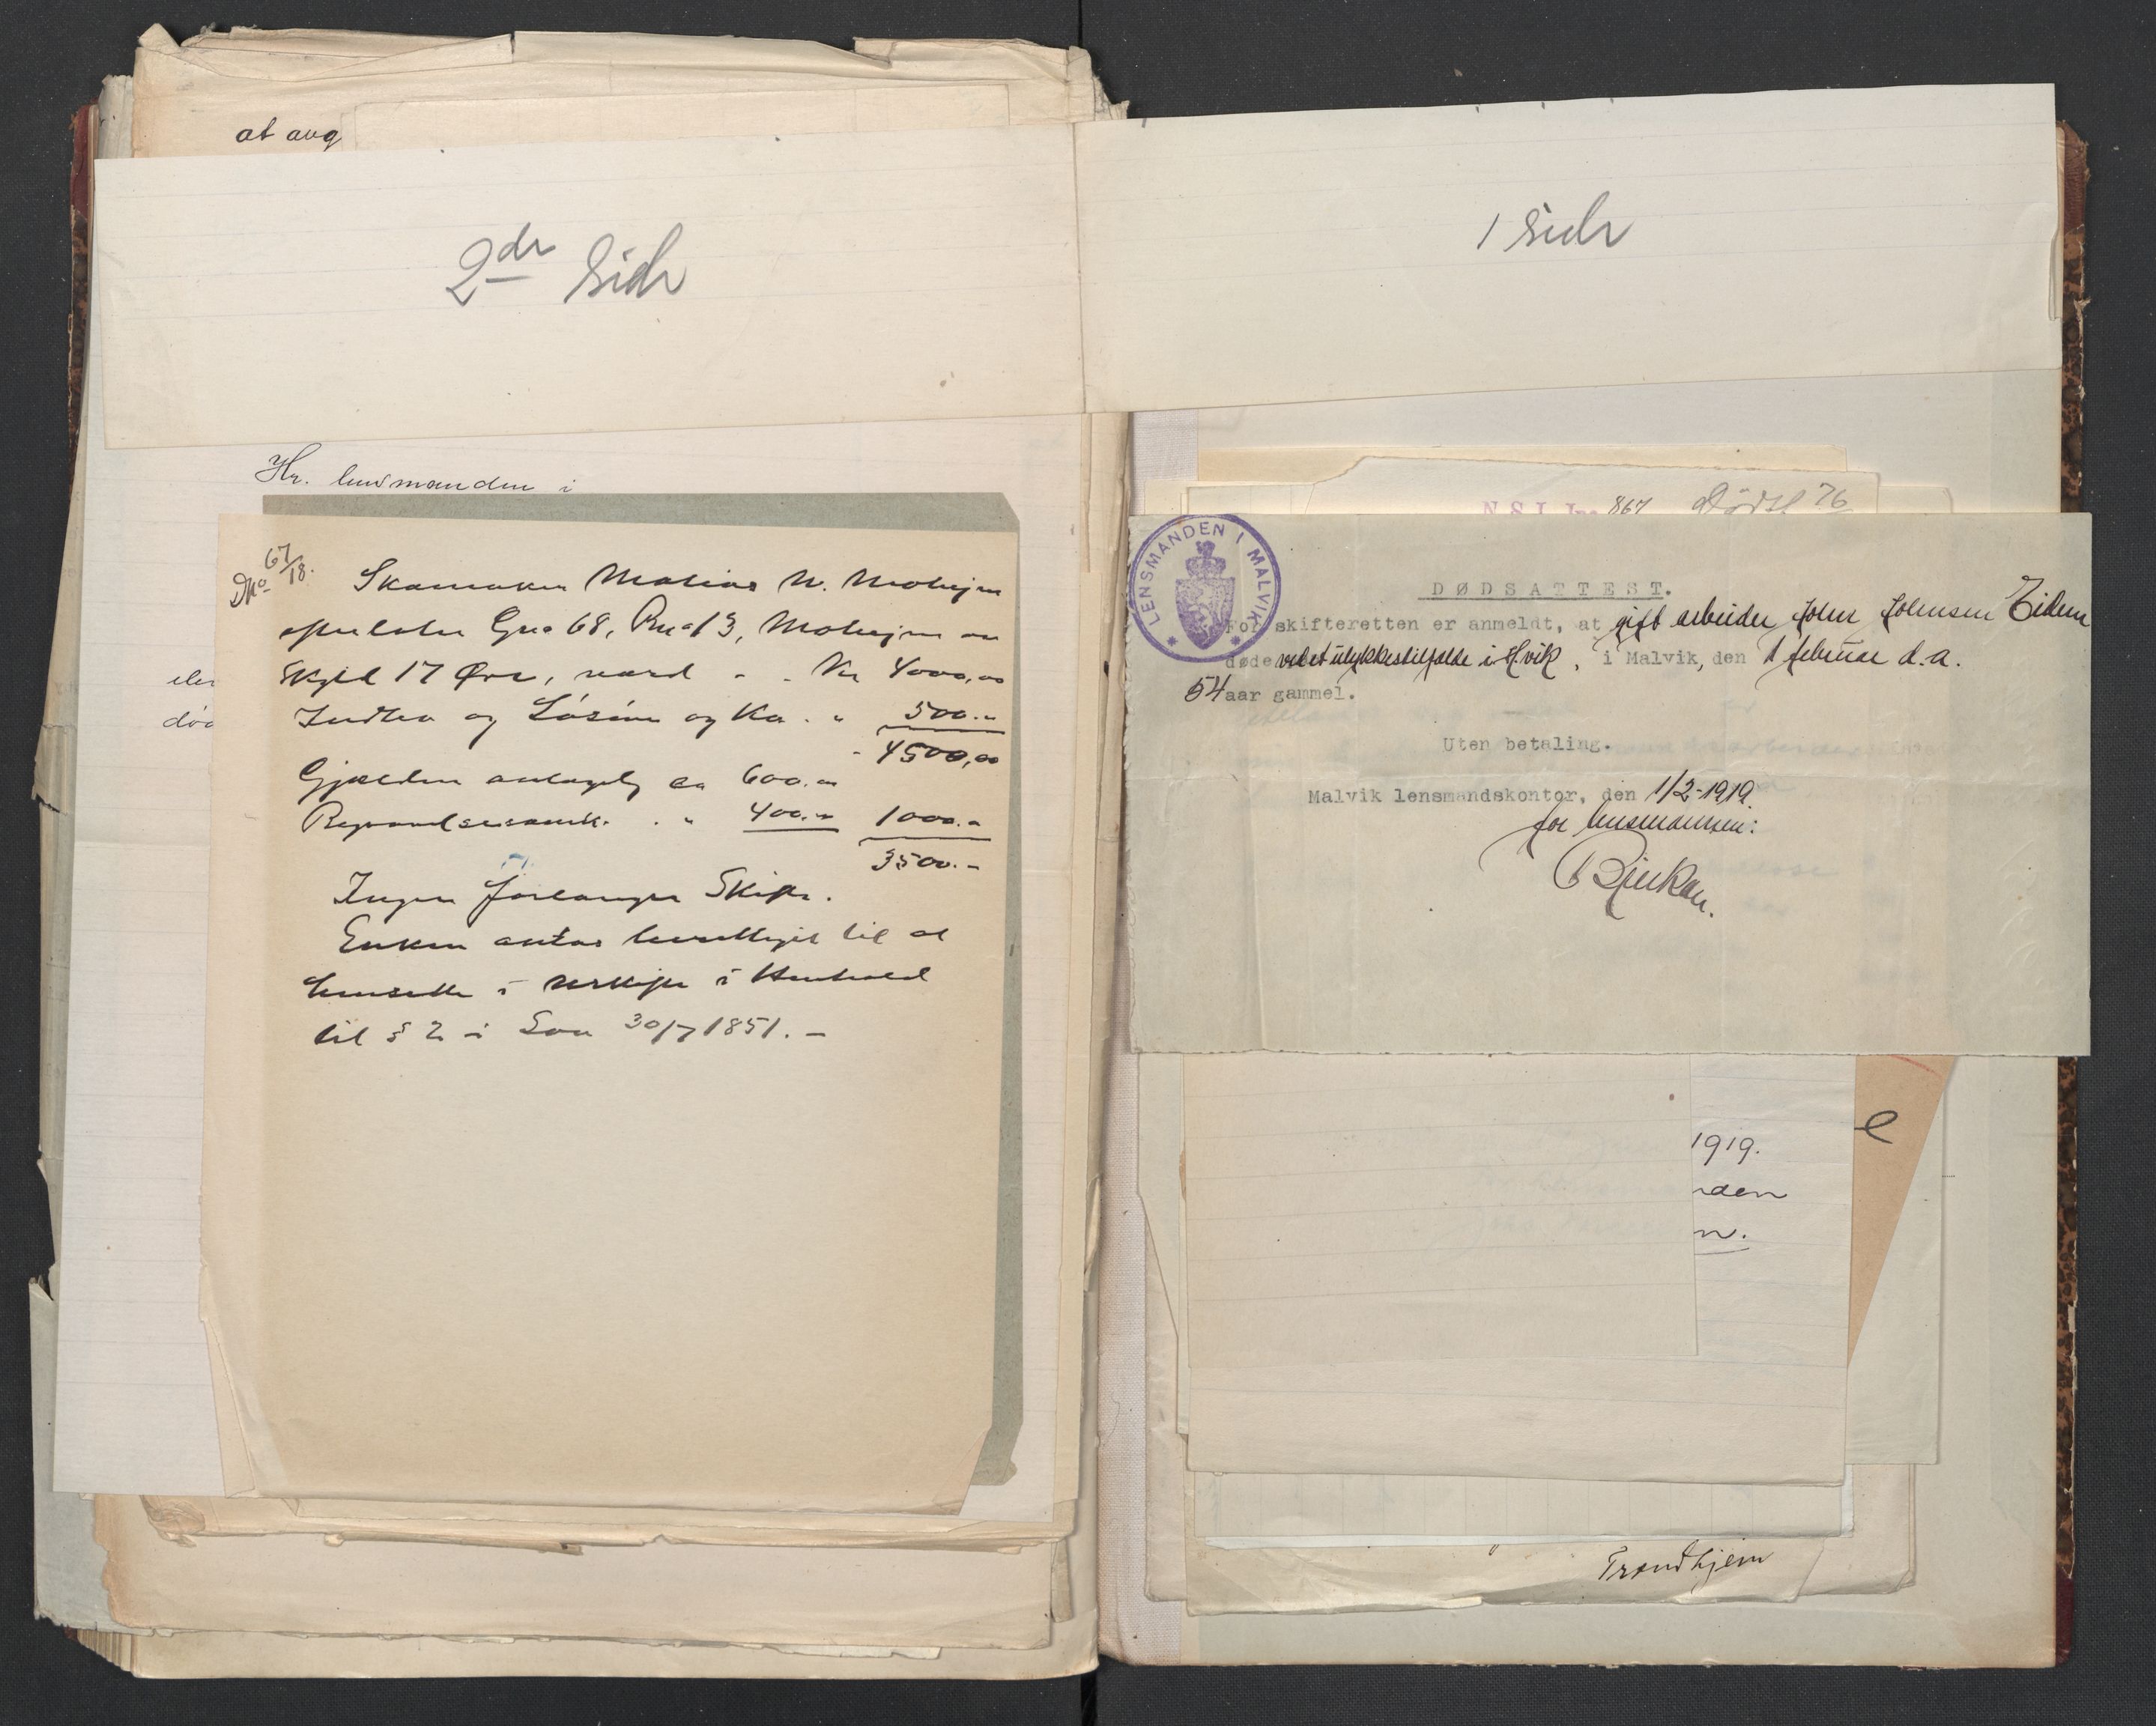 at avg
2de side
Hr. lensmanden i
Dno 67/18.
Skomaker Matias N. Mohejm
efterlater Gno 68, Bno 13, Mohejm av
Skyld 17 Øre, værd - - Kr 4000,00
Indbo og Løsøre og Ku . " 500.-
- 4500,00
Gjælden antagelig ca 600.00
400.- 1000.-
3500.-
Ingen forlanger Skifte.
Enken antas berettiget til at
hensitte i uskifte i Henhold
til § 2 i Lov 30/7 1851. -
1 side
N.S.I. Jno 867 Dødsf 76
LENSMANDEN I MALVIK
DØDSATTEST.
For skifteretten er anmeldt, at gift arbeider John Johnsen Eidem
døde ved et ulykkestilfælde i Hvik, i Malvik, den 1 februar d.a.
54 aar gammel.
Uten betaling.
Malvik lensmandskontor, den 1/2-1919.
for lensmannen:
1919.
den
n.
e
Trondhjem